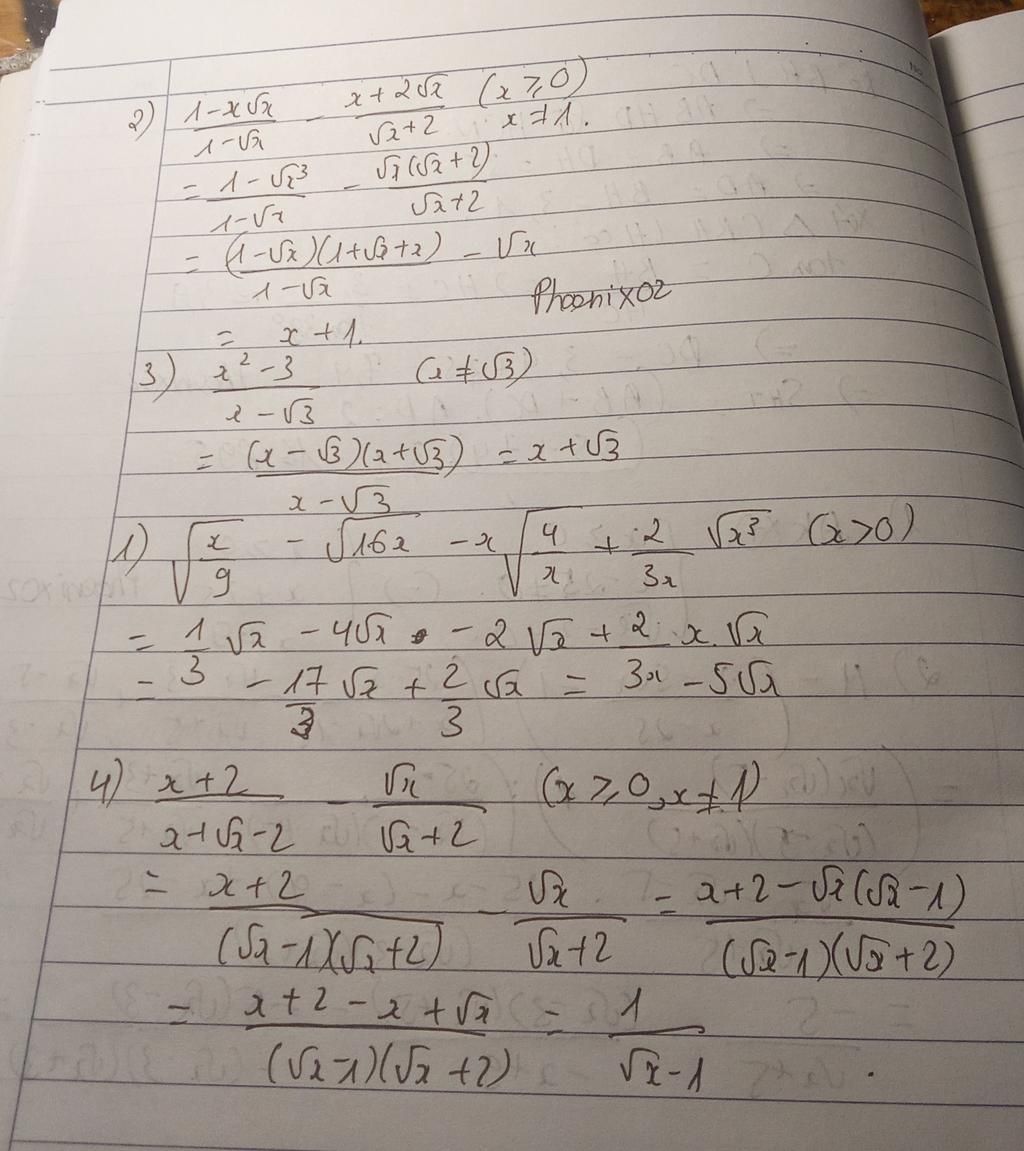 2) (1-x√x)/(1-√x) - (x+2√x)/(√x+2) (x ≥ 0) x ≠ 1.
= (1-√x³)/(1-√x) - √x(√x+2)/(√x+2)
= (1-√x)(1+√x+x)/(1-√x) - √x
Phoenix02
= x+1.
3) (x²-3)/(x-√3) (x ≠ √3)
= (x-√3)(x+√3)/(x-√3) = x+√3
1) √(x/9) - √16x - x√(4/x) + 2/(3x) √x³ (x>0)
= 1/3 √x - 4√x - 2√x + 2/(3x) . x.√x
= -17/3 √x + 2/3 √x = -5√x
4) (x+2)/(x+√x-2) - √x/(√x+2) (x ≥ 0, x ≠ 1)
= (x+2)/((√x-1)(√x+2)) - √x/(√x+2) = (x+2-√x(√x-1))/((√x-1)(√x+2))
= (x+2-x+√x)/((√x-1)(√x+2)) = 1/(√x-1) .